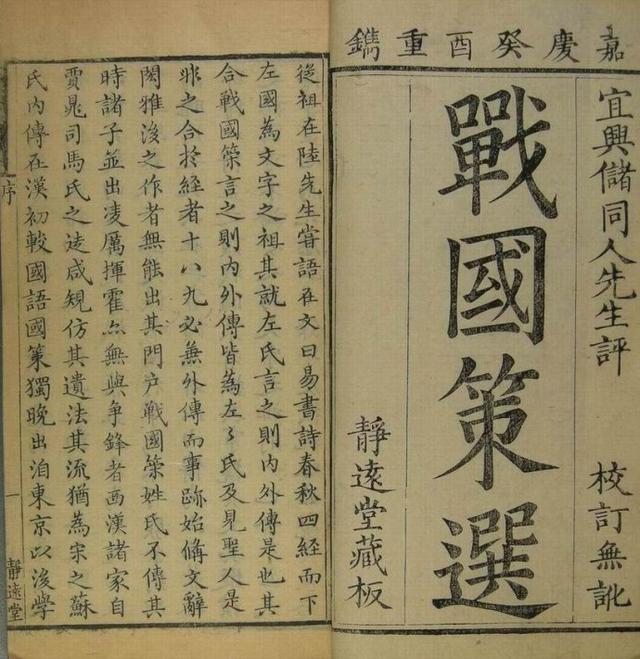 嘉慶癸酉重鐫
宜興儲同人先生評
校訂無訛
戰國策選
靜遠堂藏板
從祖在陸先生嘗語在文曰易書詩春秋四經而下
左國為文字之祖其就左氏言之則內外傳是也其
合戰國策言之則內外傳皆為左〻氏及見聖人是
非之合於經者十八九必無外傳而事跡始備文辭
閎雅後之作者無能出其門户戰國策姓氏不傳其
時諸子並出凌厲揮霍亦無與争鋒者西漢諸家自
賈晁司馬氏之徒咸規仿其遺法其流猶為宋之蘇
氏內傳在漢初較國語國策獨晚出洎東京以後學
序
一
靜遠堂